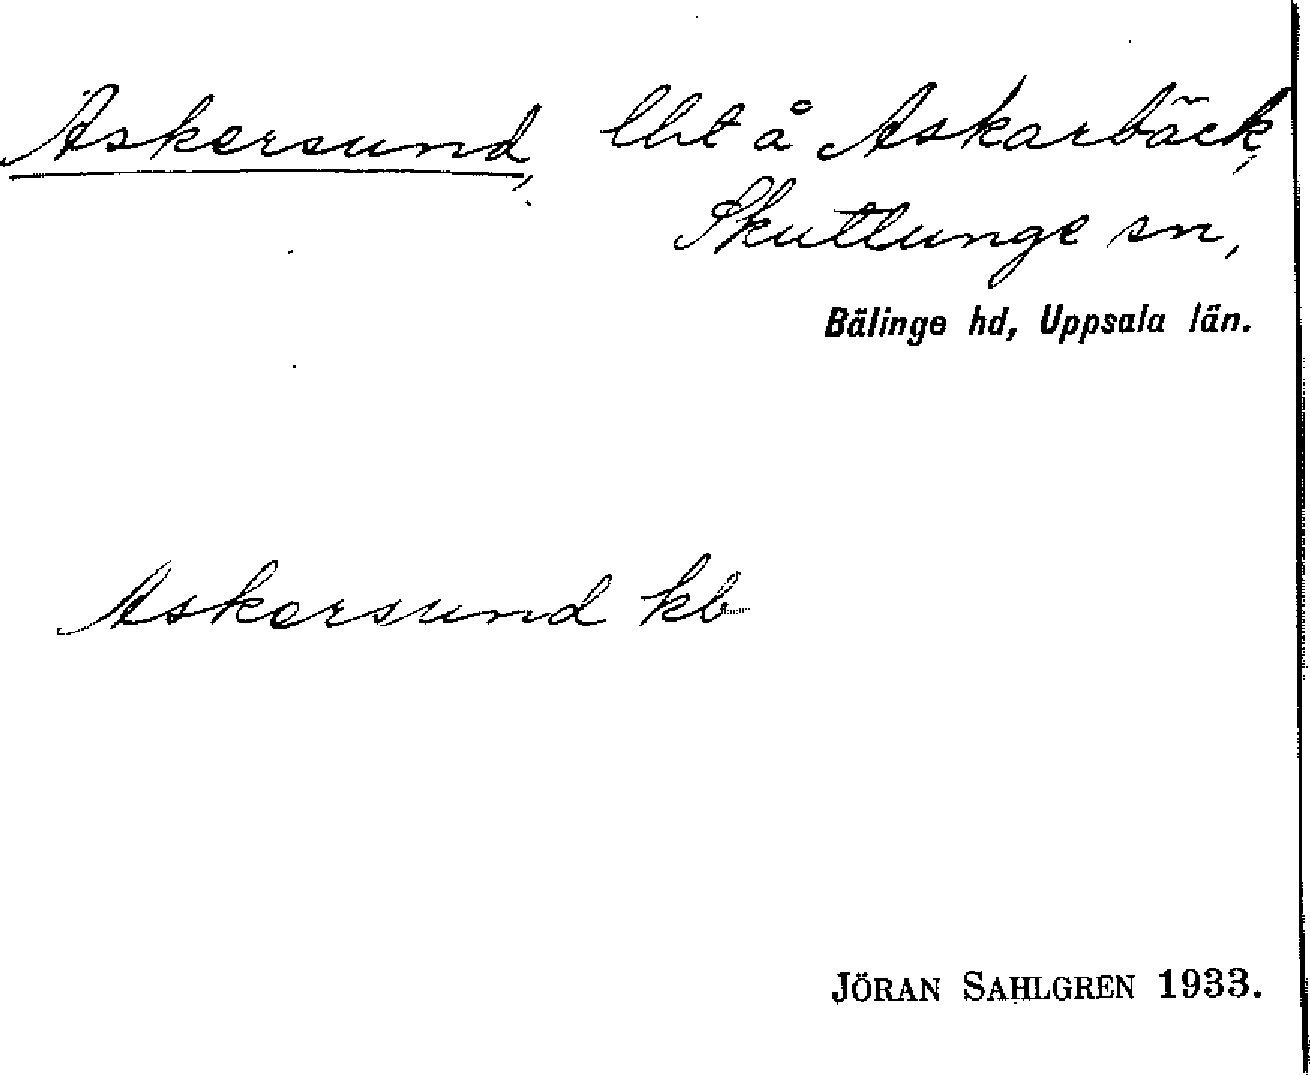 Askersund, lht å Askarbäck,
Skuttunge sn,
Bälinge hd, Uppsala län.
Askersund kb
JÖRAN SAHLGREN 1933.